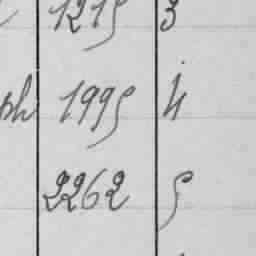 1215 3
ph 1995 4
2262 5